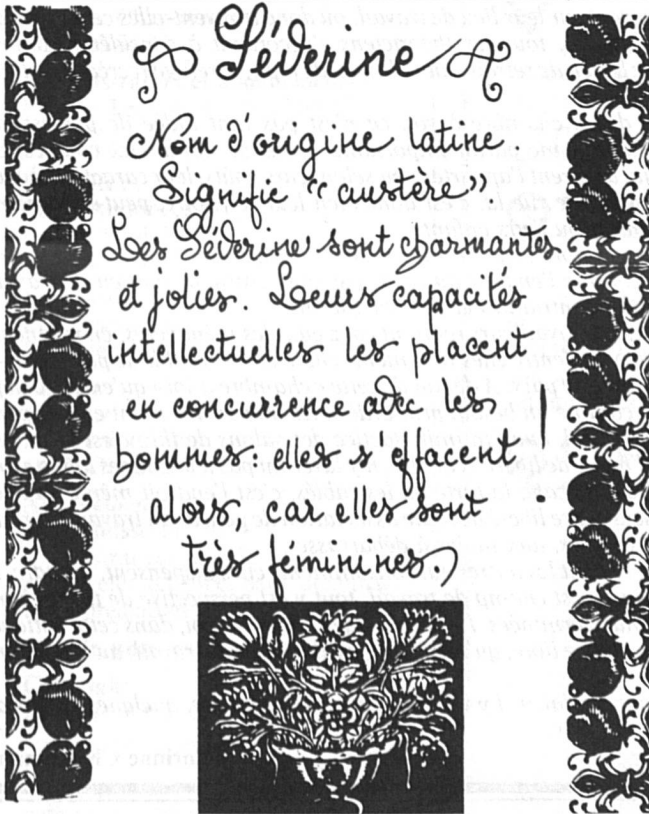 Séverine
Nom d'origine latine
Signifie "austère"
Les Séverine sont charmantes
et jolies. Leurs capacités
intellectuelles les placent
en concurrence avec les
hommes: elles s'effacent !
alors, car elles sont
très féminines